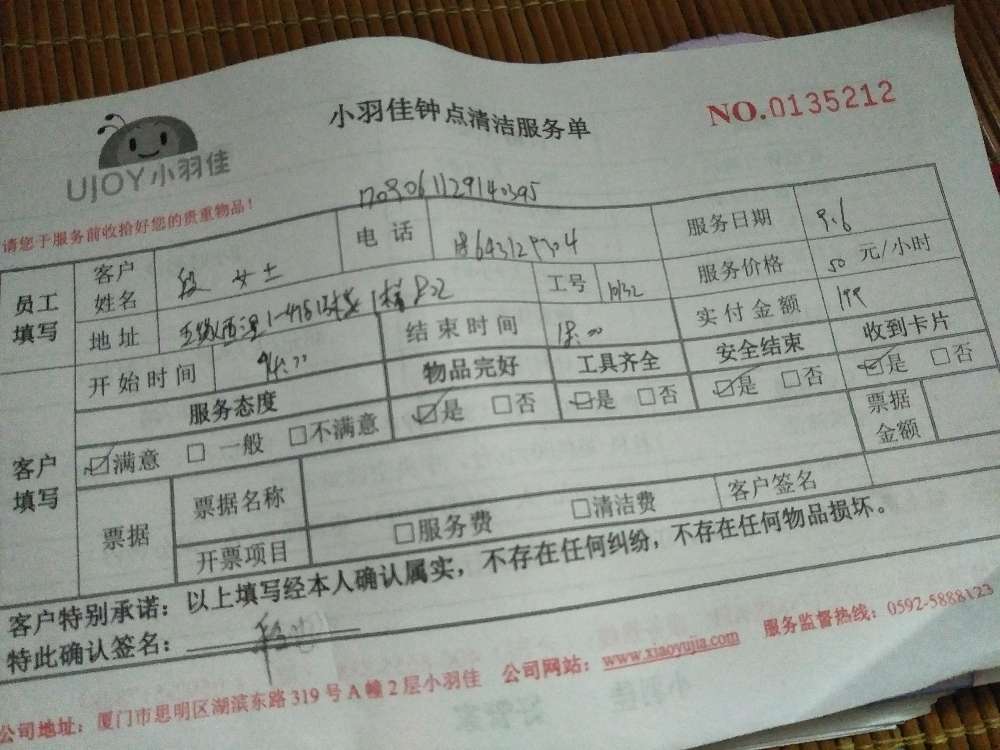 小羽佳钟点清洁服务单
NO.0135212
UJOY小羽佳
请您于服务前收拾好您的贵重物品！
员工填写
客户姓名 段女士 电话 服务日期 9.6
地址 工号 服务价格 50 元/小时
开始时间 结束时间 18:00 实付金额 199
客户填写
服务态度 物品完好 工具齐全 安全结束 收到卡片
☑满意 □一般 □不满意 ☑是 □否 ☑是 □否 ☑是 □否 ☑是 □否
票据 票据名称 票据金额
开票项目 □服务费 □清洁费 客户签名
客户特别承诺：以上填写经本人确认属实，不存在任何纠纷，不存在任何物品损坏。
特此确认签名：
公司地址：厦门市思明区湖滨东路319号A幢2层小羽佳 公司网站：www.xiaoyujia.com 服务监督热线：0592-5888123